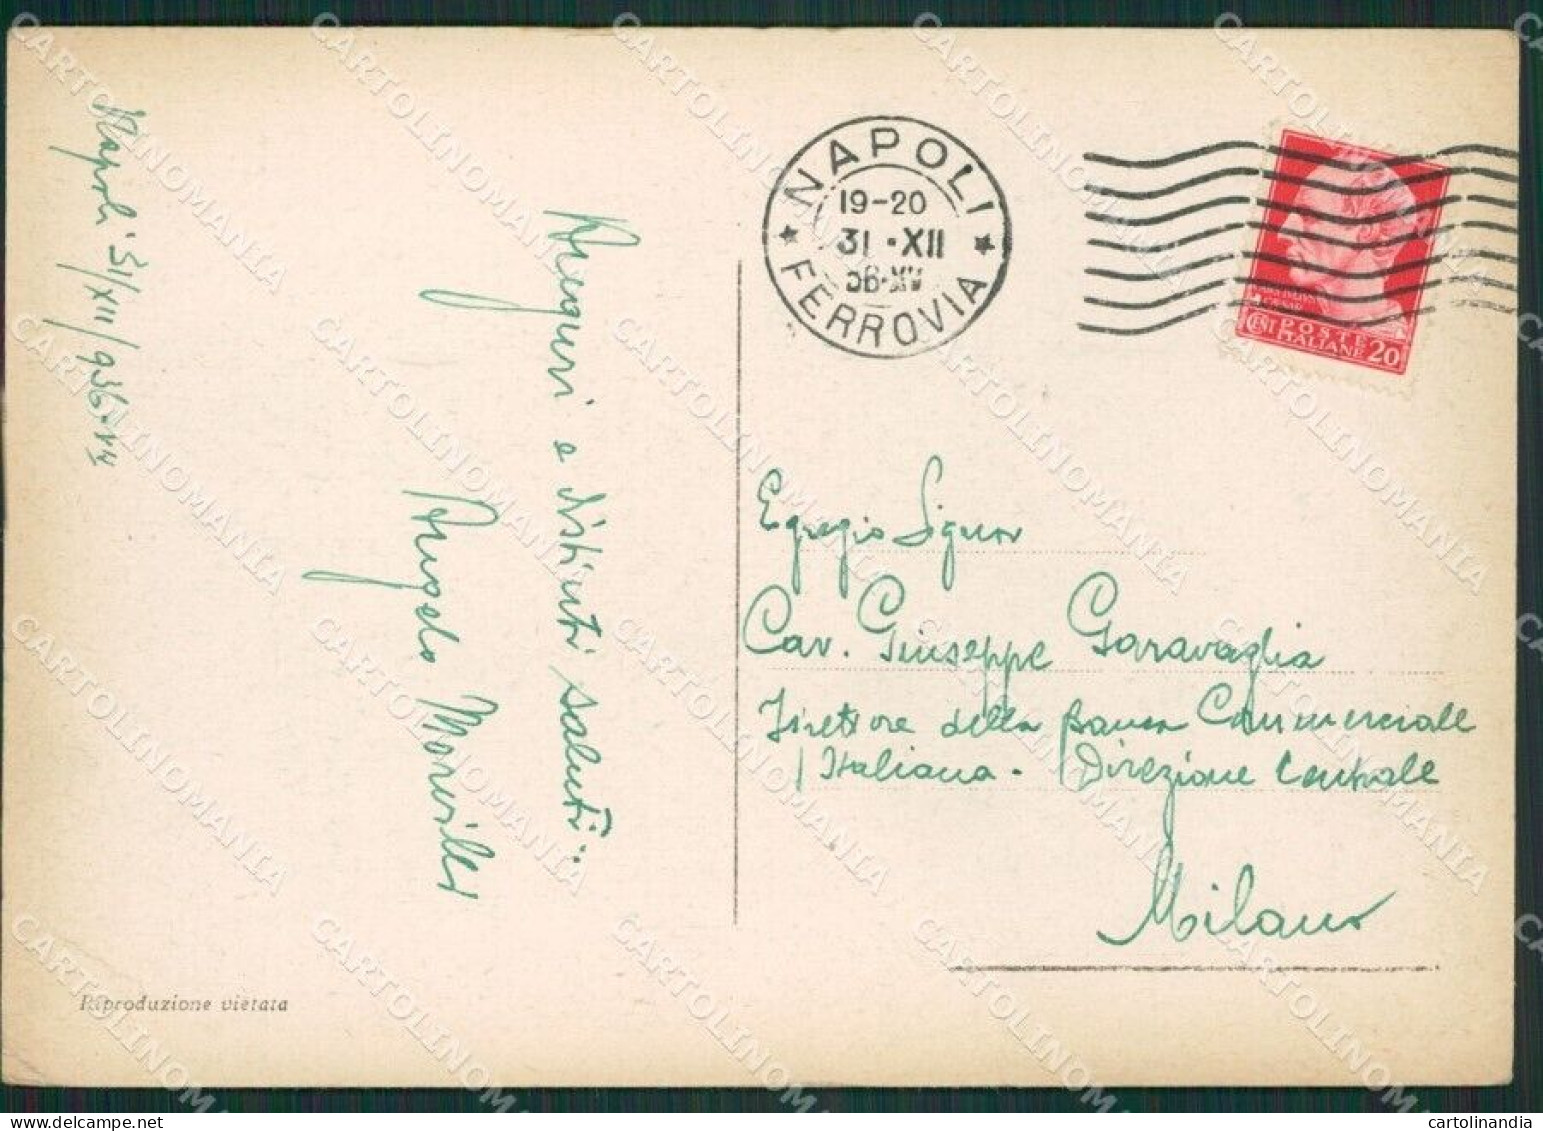 Napoli 31/XII/936-XV
Auguri e distinti saluti..
Angelo
Riproduzione vietata
NAPOLI
19-20
31 · XII
36-XV
FERROVIA
POSTE
ITALIANE
CENT 20
Egregio Signor
Cav. Giuseppe Garavaglia
Direttore della Banca Commerciale
Italiana. Direzione Centrale
Milano
CARTOLINOMANIA
cartolinandia